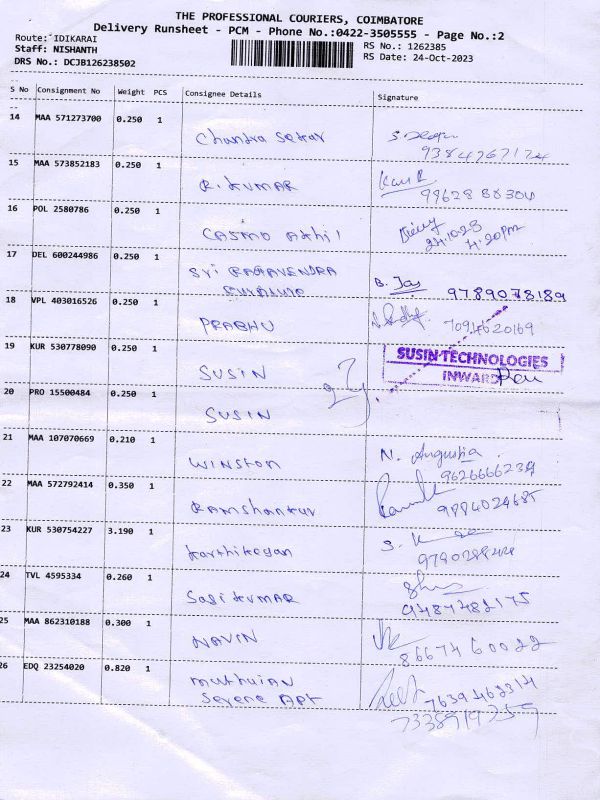 THE PROFESSIONAL COURIERS, COIMBATORE
Delivery Runsheet - PCM - Phone No.:0422-3505555 - Page No.:2
Route: IDIKARAI
RS No.: 1262385
Staff: NISHANTH
RS Date: 24-Oct-2023
DRS No.: DCJB126238502
S No Consignment No Weight PCS Consignee Details Signature
14 MAA 571273700 0.250 1
Chandra Sekar
9384267124
15 MAA 573852183 0.250 1
R. KUMAR
99628 88300
16 POL 2580786 0.250 1
CASMO Akhil
24.10.23
4.20pm
17 DEL 600244986 0.250 1
Sri RAGAVENDRA
B. Jas 9789078189
18 VPL 403016526 0.250 1
PRABHU
7094620169
19 KUR 530778090 0.250 1
SUSIN TECHNOLOGIES
INWARD
SUSIN
20 PRO 15500484 0.250 1
SUSIN
21 MAA 107070669 0.210 1
WINSTON
N. Angustia
9626666234
22 MAA 572792414 0.350 1
Ramshankar
9884024685
23 KUR 530754227 3.190 1
Karthikeyan
24 TVL 4595334 0.260 1
SASIKUMAR
9487482175
25 MAA 862310188 0.300 1
NAVIN
8667460022
26 EDQ 23254020 0.820 1
muthuian
Serene Apt
7639462314
7338919259